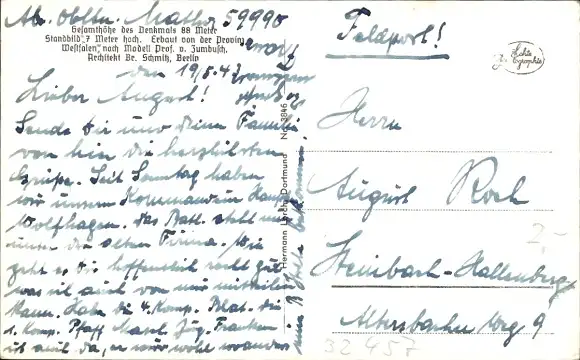 Abs. Obltn. Mathes 59990
Gesamthöhe des Denkmals 88 Meter
Standbild 7 Meter hoch. Erbaut von der Provinz
Westfalen, nach Modell Prof. v. Zumbusch.
Architekt Br. Schmitz, Berlin
den 19.5.43
Lieber August!
Sende dir und deine Familie
von hier die herzlichsten
Grüße. Seit Sonntag haben
wir unsern Kommandeur Haupt
Wolfhagen. Das Batl. steht nun
unter der alten Firma. Wie
geht es dir hoffentlich recht gut
was ich auch von mir mitteilen
kann. Habe die 4. Komp. Blat. die
1. Komp. Pfaff
ist auch da, er wär wohl woanders
Hermann Lorch, Dortmund No. 3846
Feldpost!
Echte
Herrn
August Koch
Steinbach-Hallenberg
Altersbacher Weg 9
2,-
32457